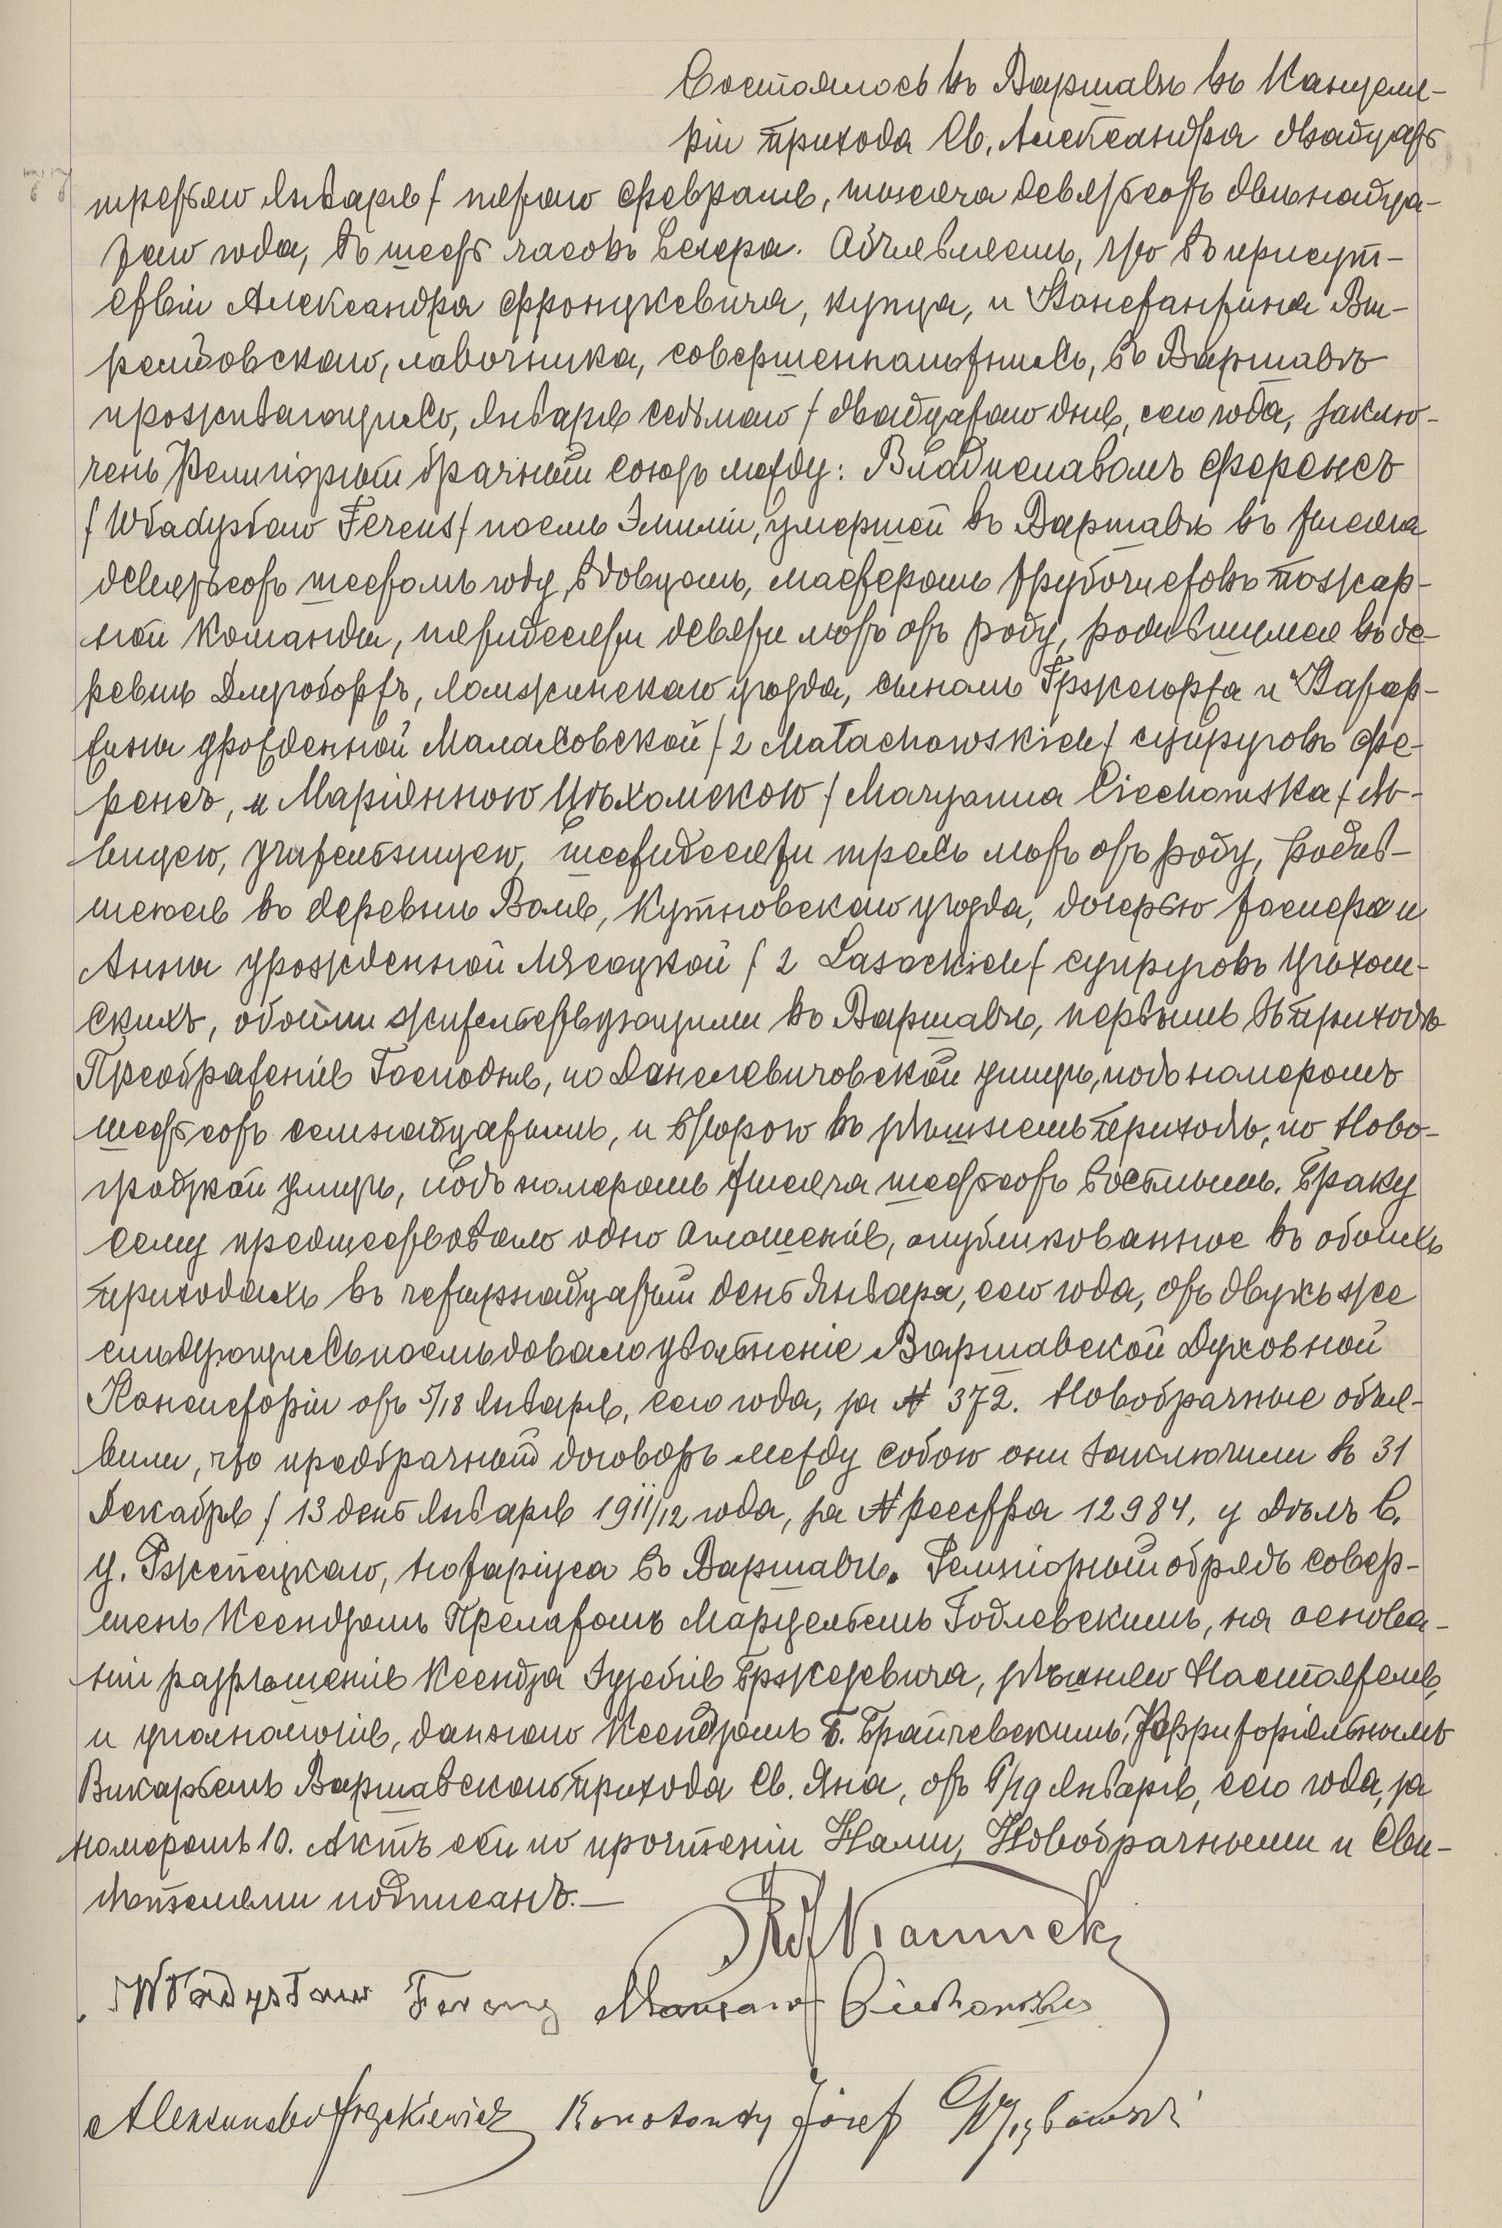 Состоялось въ Варшавѣ въ Канцеля-
ріи прихода Св. Александра двадцать
третьяго Января / пятаго Февраля, тысяча девятьсотъ двѣнадца-
таго года, въ шесть часовъ вечера. Объявляемъ, что въ присут-
ствіи Александра Фронцкевича, купца, и Константина
лавочника, совершеннолѣтнихъ, въ Варшавѣ
проживающихъ, Января седьмаго / двадцатаго дня, сего года, заклю-
ченъ Религіозный брачный союзъ между: Владиславомъ Ференсъ
/ Władysław Ferens / послѣ Эмиліи, умершей въ Варшавѣ въ тысяча
девятьсотъ шестомъ году, вдовцомъ, мастеромъ трубочистовъ пожар-
ной команды, пятидесяти девяти лѣтъ отъ роду, родившимся въ де-
ревнѣ Длугоборзъ, Ломжинскаго уѣзда, сыномъ Гржегоржа и Катар-
жины урожденной Малаховской / z Małachowskich / супруговъ Фе-
ренсъ, и Маріанною Цѣхомскою / Maryanna Ciechomska / дѣ-
вицею, учительницею, шестидесяти трехъ лѣтъ отъ роду, родив-
шеюся въ деревнѣ Воля, Кутновскаго уѣзда, дочерью и
Анны урожденной Лясоцкой / z Lasockich / супруговъ Цѣхом-
скихъ, обоими жительствующими въ Варшавѣ, первымъ въ приходѣ
Преображенія Господня, по Данелевичовской улицѣ, подъ номеромъ
шестьсотъ семнадцатымъ, и второю въ здѣшнемъ приходѣ, по Ново-
гродзкой улицѣ, подъ номеромъ тысяча шестьсотъ восьмымъ. Браку
сему предшествовало одно оглашеніе, опубликованное въ обоихъ
приходахъ въ четырнадцатый день Января, сего года, отъ двухъ же
слѣдующихъ послѣдовало увольненіе Варшавской Духовной
Консисторіи отъ 5/18 Января, сего года, за № 372. Новобрачные объя-
вили, что предбрачный договоръ между собою они заключили въ 31
Декабря / 13 день Января 1911/12 года, за № реестра 12984, у Дѣлъ С.
У. Гжепецкаго, Нотаріуса въ Варшавѣ. Религіозный обрядъ совер-
шенъ Ксендзомъ Прелатомъ Марцельемъ Годлевскимъ, на основа-
ніи разрѣшенія Ксендза Эузебія Бржезевича, здѣшняго Настоятеля,
и уполномочія, даннаго Ксендзомъ Б. Брайчевскимъ, Территоріяльнымъ
Викарьемъ Варшавскаго прихода Св. Яна, отъ 6/19 Января, сего года, за
номеромъ 10. Актъ сей по прочтеніи Нами, Новобрачными и Сви-
дѣтелями подписанъ. —
Władysław Ferens Maryanna Ciechomska
Aleksander Frąckiewicz Konstanty Józef